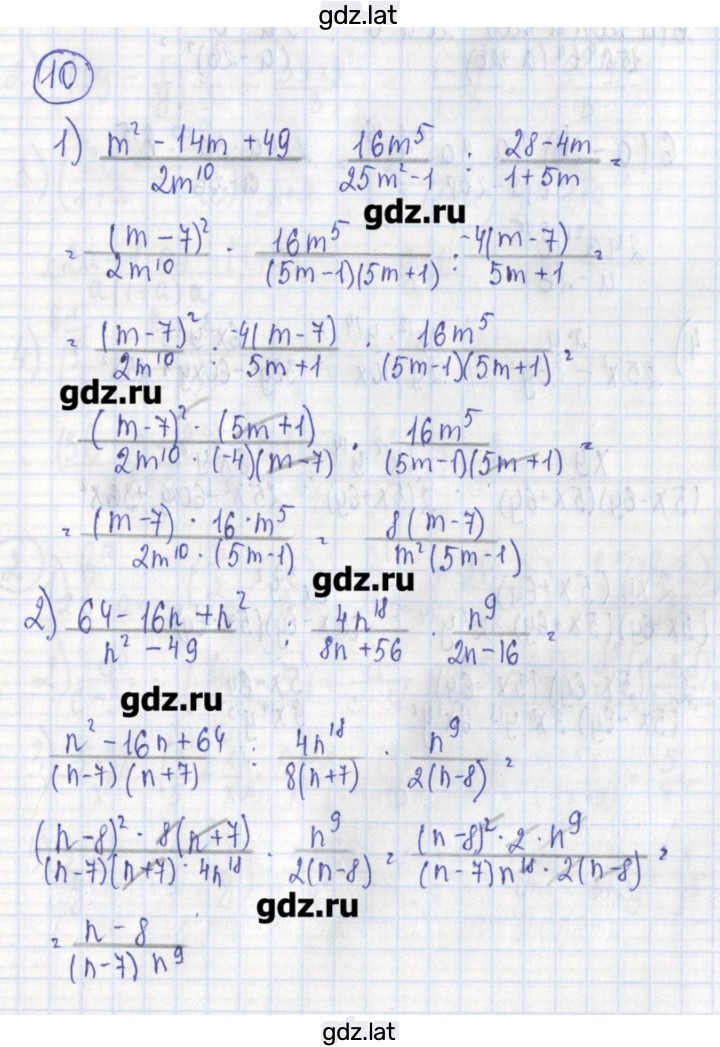 gdz.lat
10
1) (m² - 14m + 49)/(2m¹⁰) · (16m⁵)/(25m² - 1) : (28 - 4m)/(1 + 5m) =
gdz.ru
= (m - 7)²/(2m¹⁰) · (16m⁵)/((5m - 1)(5m + 1)) : (-4(m - 7))/(5m + 1) =
= (m - 7)²/(2m¹⁰) : (-4(m - 7))/(5m + 1) · (16m⁵)/((5m - 1)(5m + 1)) =
gdz.ru
((m - 7)² · (5m + 1))/(2m¹⁰ · (-4)(m - 7)) · (16m⁵)/((5m - 1)(5m + 1)) =
= ((m - 7) · 16 · m⁵)/(2m¹⁰ · (5m - 1)) = (8(m - 7))/(m²(5m - 1))
gdz.ru
2) (64 - 16n + n²)/(n² - 49) : (4n¹⁸)/(8n + 56) · (n⁹)/(2n - 16) =
gdz.ru
(n² - 16n + 64)/((n - 7)(n + 7)) : (4n¹⁸)/(8(n + 7)) · (n⁹)/(2(n - 8)) =
((n - 8)² · 8(n + 7))/((n - 7)(n + 7) · 4n¹⁸) · (n⁹)/(2(n - 8)) = ((n - 8)² · 2 · n⁹)/((n - 7)n¹⁸ · 2(n - 8)) =
gdz.ru
= (n - 8)/((n - 7) n⁹)
gdz.lat